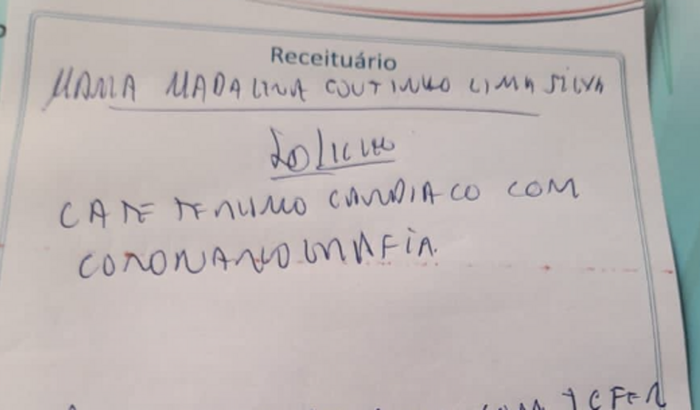 Receituário
MARIA MADALINA COUTINHO LIMA SILVA
Solicito
CATETERISMO CARDIACO COM
CORONARIOGRAFIA.
COM ICFER